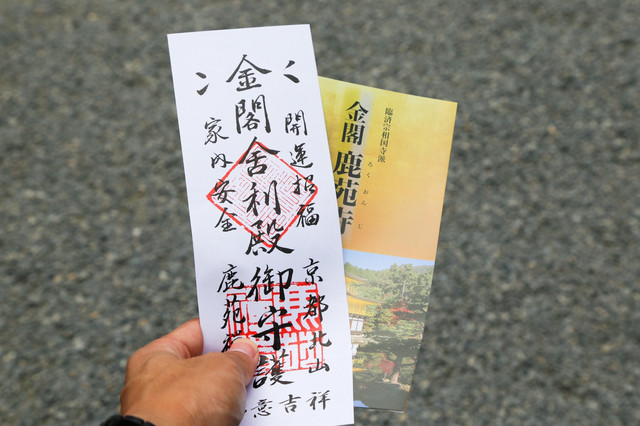 開運招福
金閣舎利殿御守護
家内安全
京都北山
鹿苑
意吉祥
臨済宗相国寺派
金閣 鹿苑寺
ろくおんじ